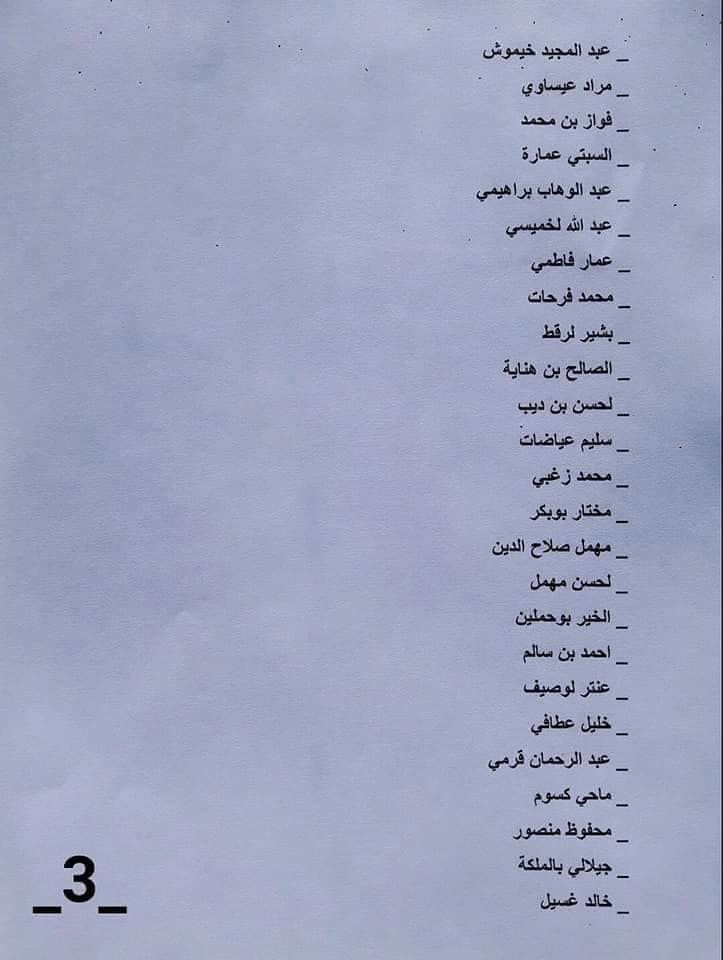 _ عبد المجيد خيموش
_ مراد عيساوي
_ فواز بن محمد
_ السبتي عمارة
_ عبد الوهاب براهيمي
_ عبد الله لخميسي
_ عمار فاطمي
_ محمد فرحات
_ بشير لرقط
_ الصالح بن هناية
_ لحسن بن ديب
_ سليم عياضات
_ محمد زغبي
_ مختار بوبكر
_ مهمل صلاح الدين
_ لحسن مهمل
_ الخير بوحملين
_ احمد بن سالم
_ عنتر لوصيف
_ خليل عطافي
_ عبد الرحمان قرمي
_ ماحي كسوم
_ محفوظ منصور
_ جيلالي بالملكة
_ خالد غسيل
_3_